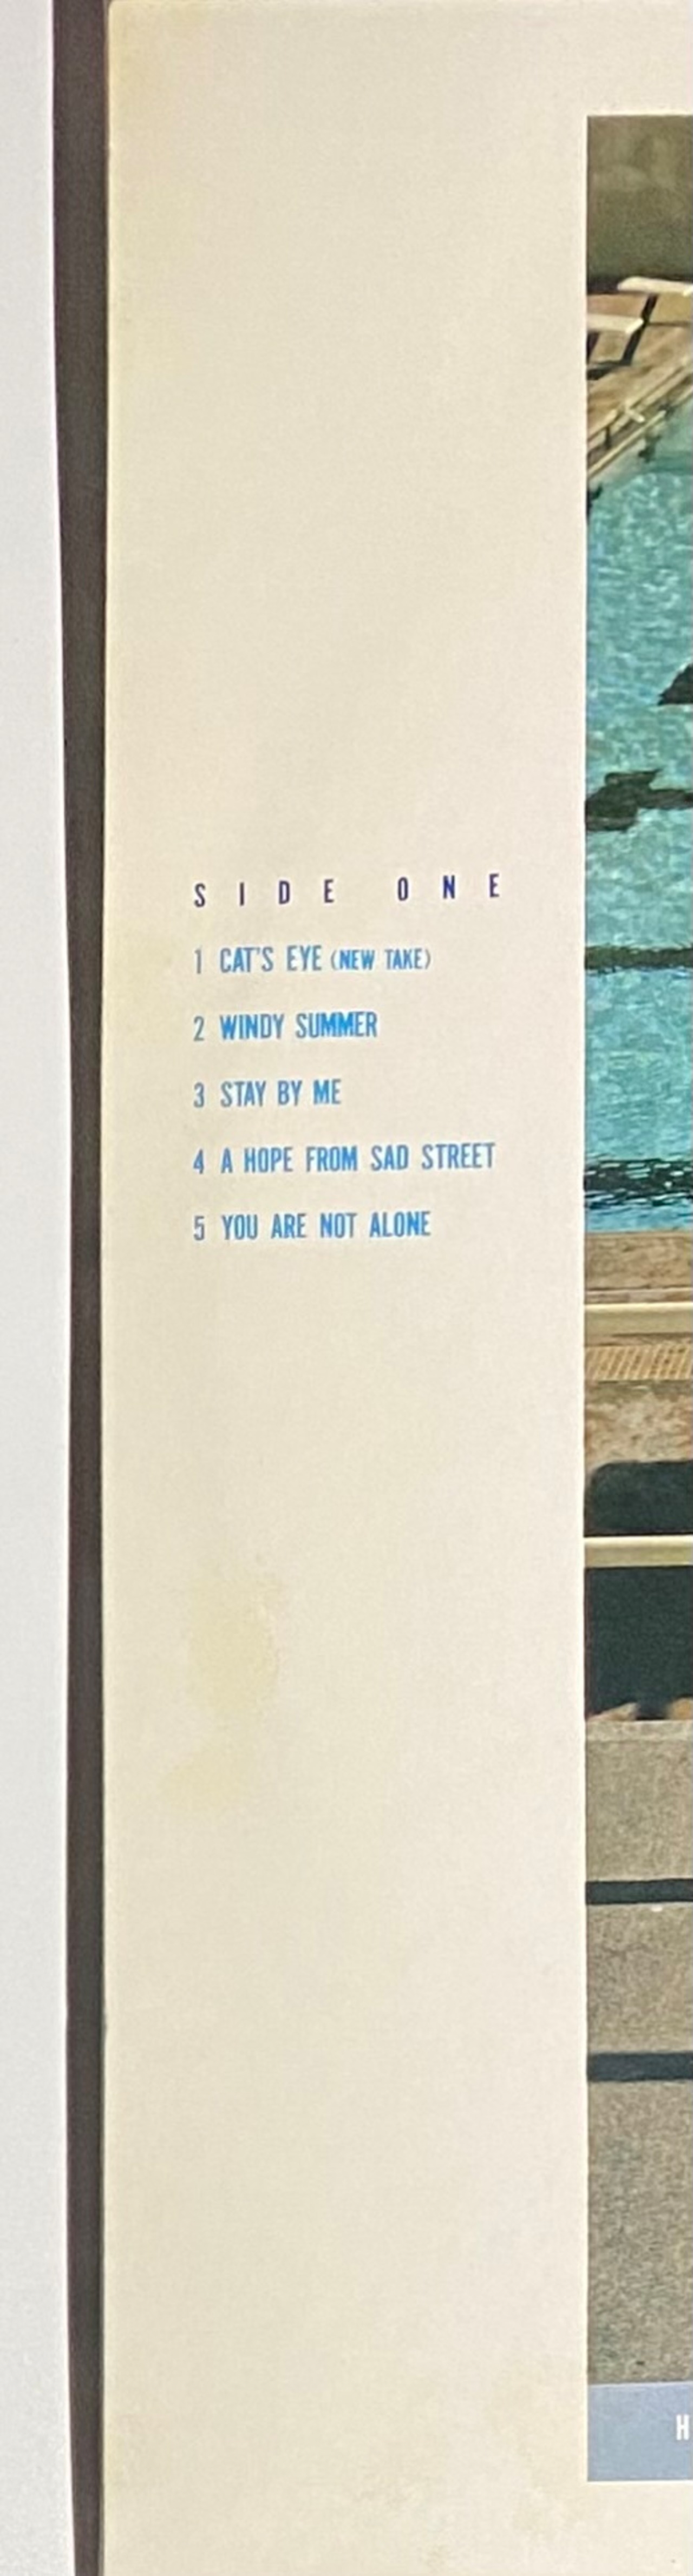 SIDE ONE
1 CAT'S EYE (NEW TAKE)
2 WINDY SUMMER
3 STAY BY ME
4 A HOPE FROM SAD STREET
5 YOU ARE NOT ALONE
H